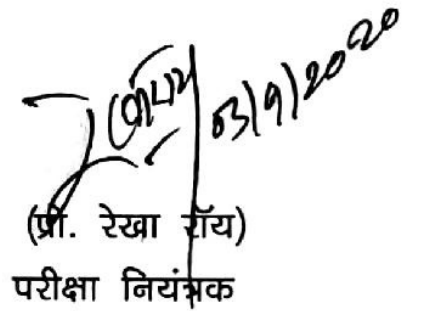 03/9/2020
(प्रो. रेखा रॉय)
परीक्षा नियंत्रक